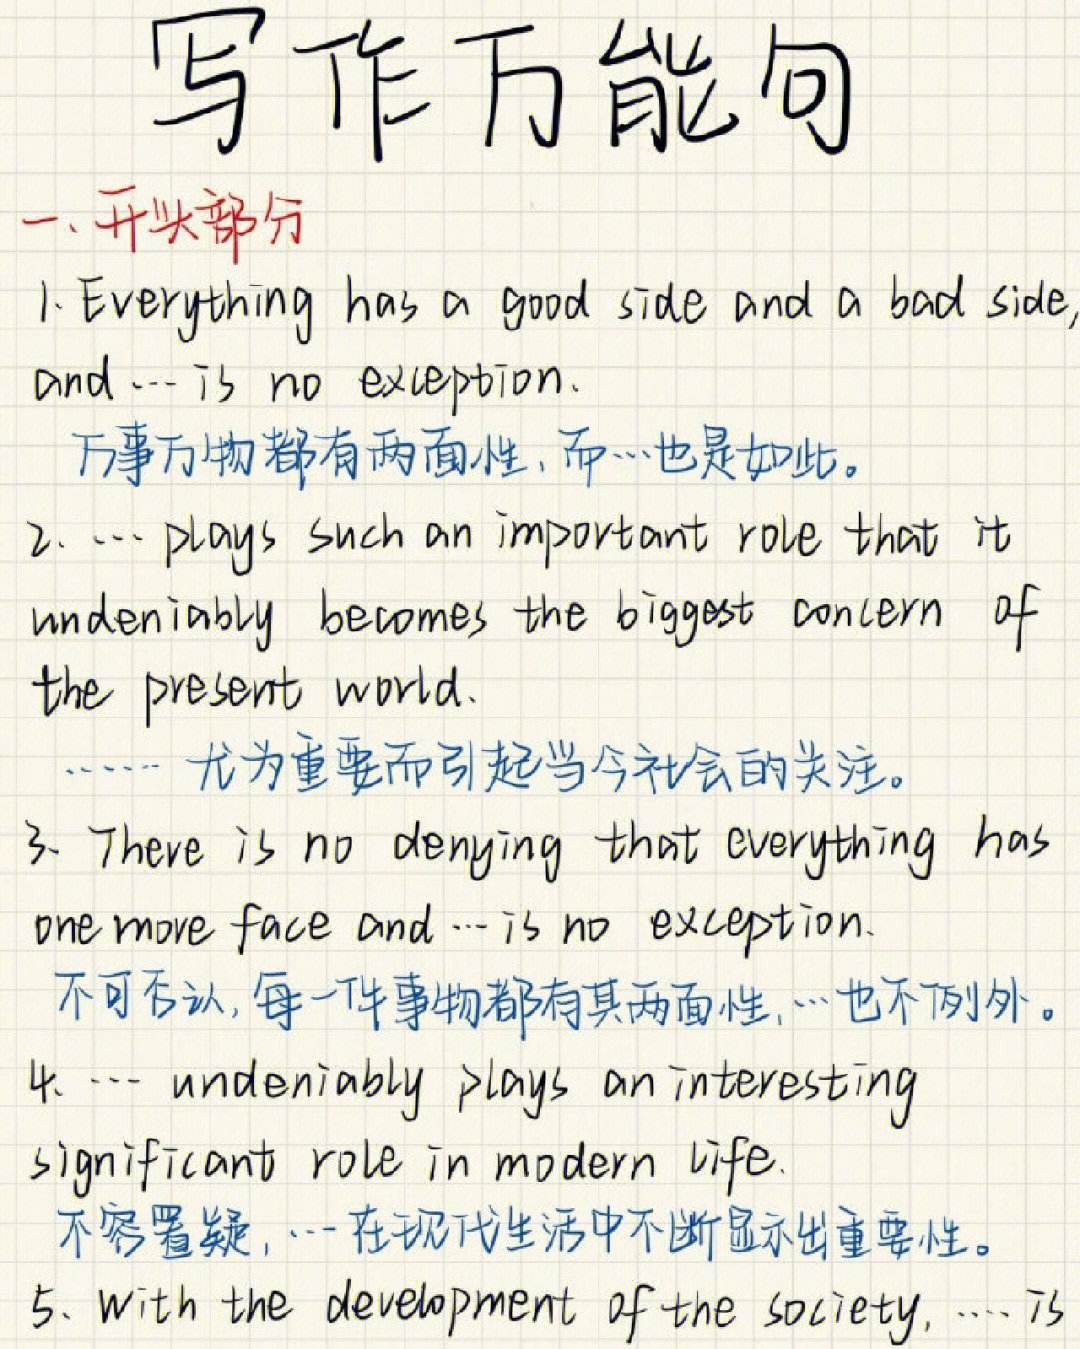 写作万能句
一、开头部分
1. Everything has a good side and a bad side,
and … is no exception.
万事万物都有两面性，而…也是如此。
2. … plays such an important role that it
undeniably becomes the biggest concern of
the present world.
…… 尤为重要而引起当今社会的关注。
3. There is no denying that everything has
one more face and … is no exception.
不可否认，每一件事物都有其两面性，…也不例外。
4. … undeniably plays an interesting
significant role in modern life.
不容置疑，…在现代生活中不断显示出重要性。
5. With the development of the society, …. is